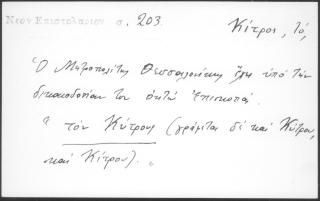 Νεον Επιστολαριον σ. 203
Κίτρος, τό,
Ὁ Μητροπολίτης Θεσσαλονίκης ἔχει ὑπό τήν
δικαιοδοσίαν του ὀκτώ Ἐπισκοπάς.
"τόν Κύτρους (γράφεται δέ καί Κύτρου,
καί Κίτρου)."